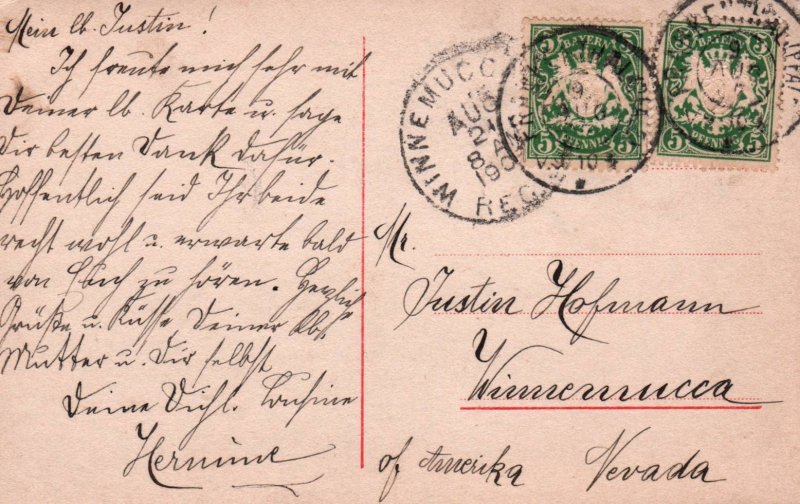 Mein lb. Justin!
Ich freute mich sehr mit
Deiner lb. Karte u. sage
Dir besten Dank dafür.
Hoffentlich seid Ihr beide
recht wohl u. erwarte bald
von Euch zu hören. Herzlich
Grüße u. Küsse Deiner lbs.
Mutter u. Dir selbst
Deine Dichl. Cousine
Hermine
WINNEMUCC
AUG
21
8 A
190
REC
BAYERN
5 5
5 PFENNIG 5
BAYERN
5 5
5 PFENNIG 5
Mr.
Justin Hofmann
Winnemucca
of Amerika Nevada